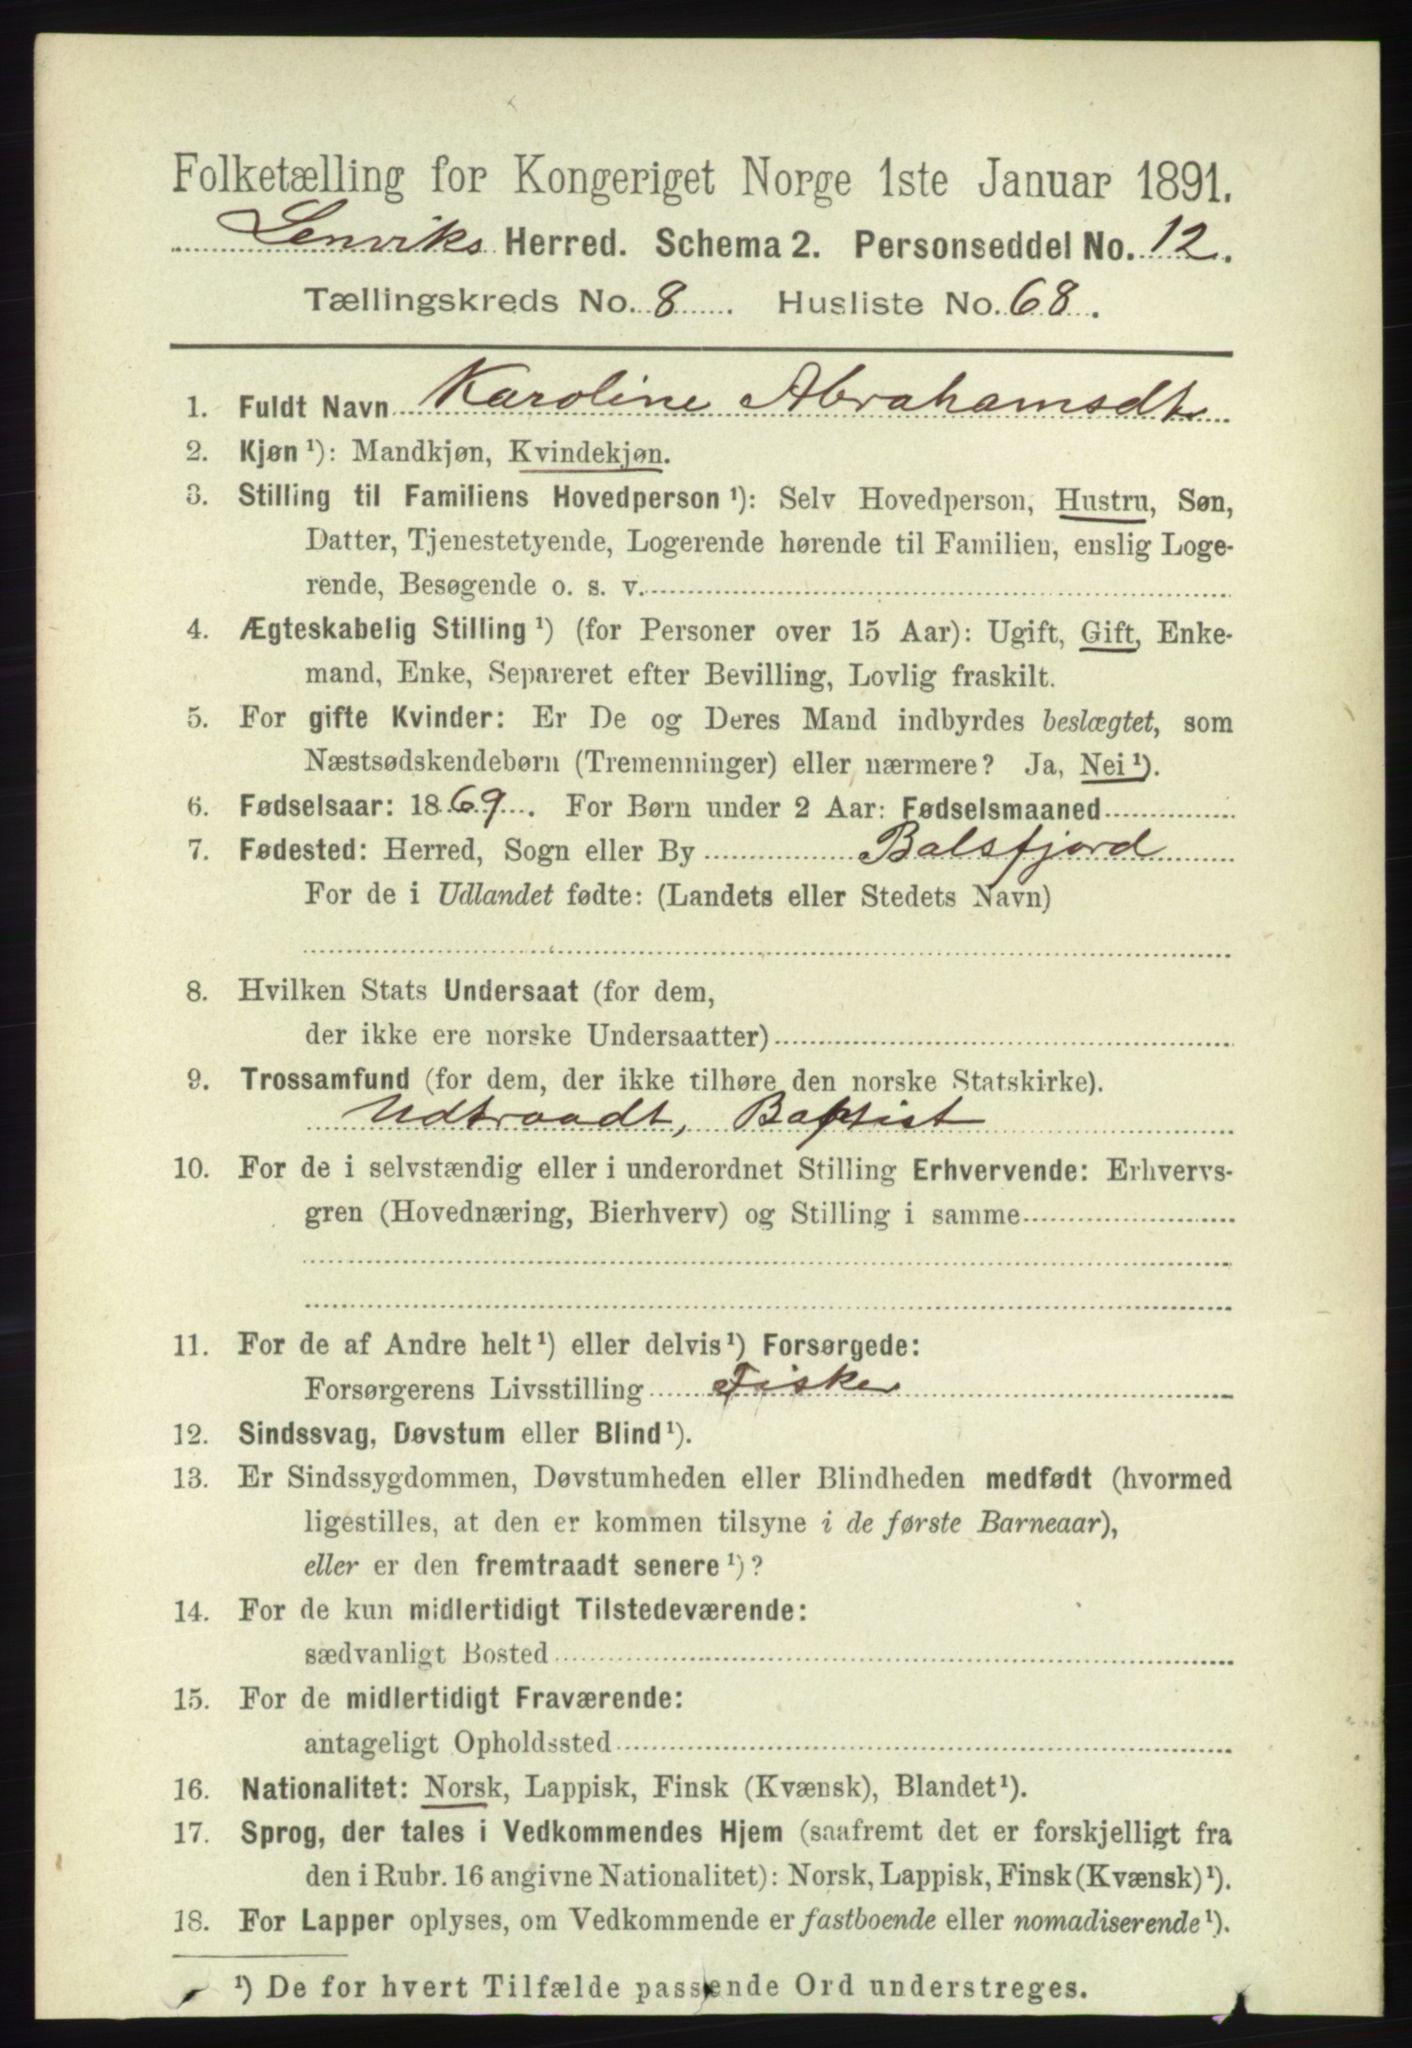 Folketælling for Kongeriget Norge 1ste Januar 1891.
Lenviks Herred. Schema 2. Personseddel No. 12.
Tællingskreds No. 8. Husliste No. 68.
1. Fuldt Navn Karoline Abrahamsdtr
2. Kjøn ¹): Mandkjøn, Kvindekjøn.
3. Stilling til Familiens Hovedperson ¹): Selv Hovedperson, Hustru, Søn,
Datter, Tjenestetyende, Logerende hørende til Familien, enslig Loge-
rende, Besøgende o. s. v.
4. Ægteskabelig Stilling ¹) (for Personer over 15 Aar): Ugift, Gift, Enke-
mand, Enke, Separeret efter Bevilling, Lovlig fraskilt.
5. For gifte Kvinder: Er De og Deres Mand indbyrdes beslægtet, som
Næstsødskendebørn (Tremenninger) eller nærmere? Ja, Nei ¹).
6. Fødselsaar: 1869. For Børn under 2 Aar: Fødselsmaaned
7. Fødested: Herred, Sogn eller By Balsfjord
For de i Udlandet fødte: (Landets eller Stedets Navn)
8. Hvilken Stats Undersaat (for dem,
der ikke ere norske Undersaatter)
9. Trossamfund (for dem, der ikke tilhøre den norske Statskirke).
Udtraadt, Baptist
10. For de i selvstændig eller i underordnet Stilling Erhvervende: Erhvervs-
gren (Hovednæring, Bierhverv) og Stilling i samme
11. For de af Andre helt ¹) eller delvis ¹) Forsørgede:
Forsørgerens Livsstilling Fisker
12. Sindssvag, Døvstum eller Blind ¹).
13. Er Sindssygdommen, Døvstumheden eller Blindheden medfødt (hvormed
ligestilles, at den er kommen tilsyne i de første Barneaar),
eller er den fremtraadt senere ¹)?
14. For de kun midlertidigt Tilstedeværende:
sædvanligt Bosted
15. For de midlertidigt Fraværende:
antageligt Opholdssted
16. Nationalitet: Norsk, Lappisk, Finsk (Kvænsk), Blandet ¹).
17. Sprog, der tales i Vedkommendes Hjem (saafremt det er forskjelligt fra
den i Rubr. 16 angivne Nationalitet): Norsk, Lappisk, Finsk (Kvænsk) ¹).
18. For Lapper oplyses, om Vedkommende er fastboende eller nomadiserende ¹).
¹) De for hvert Tilfælde passende Ord understreges.